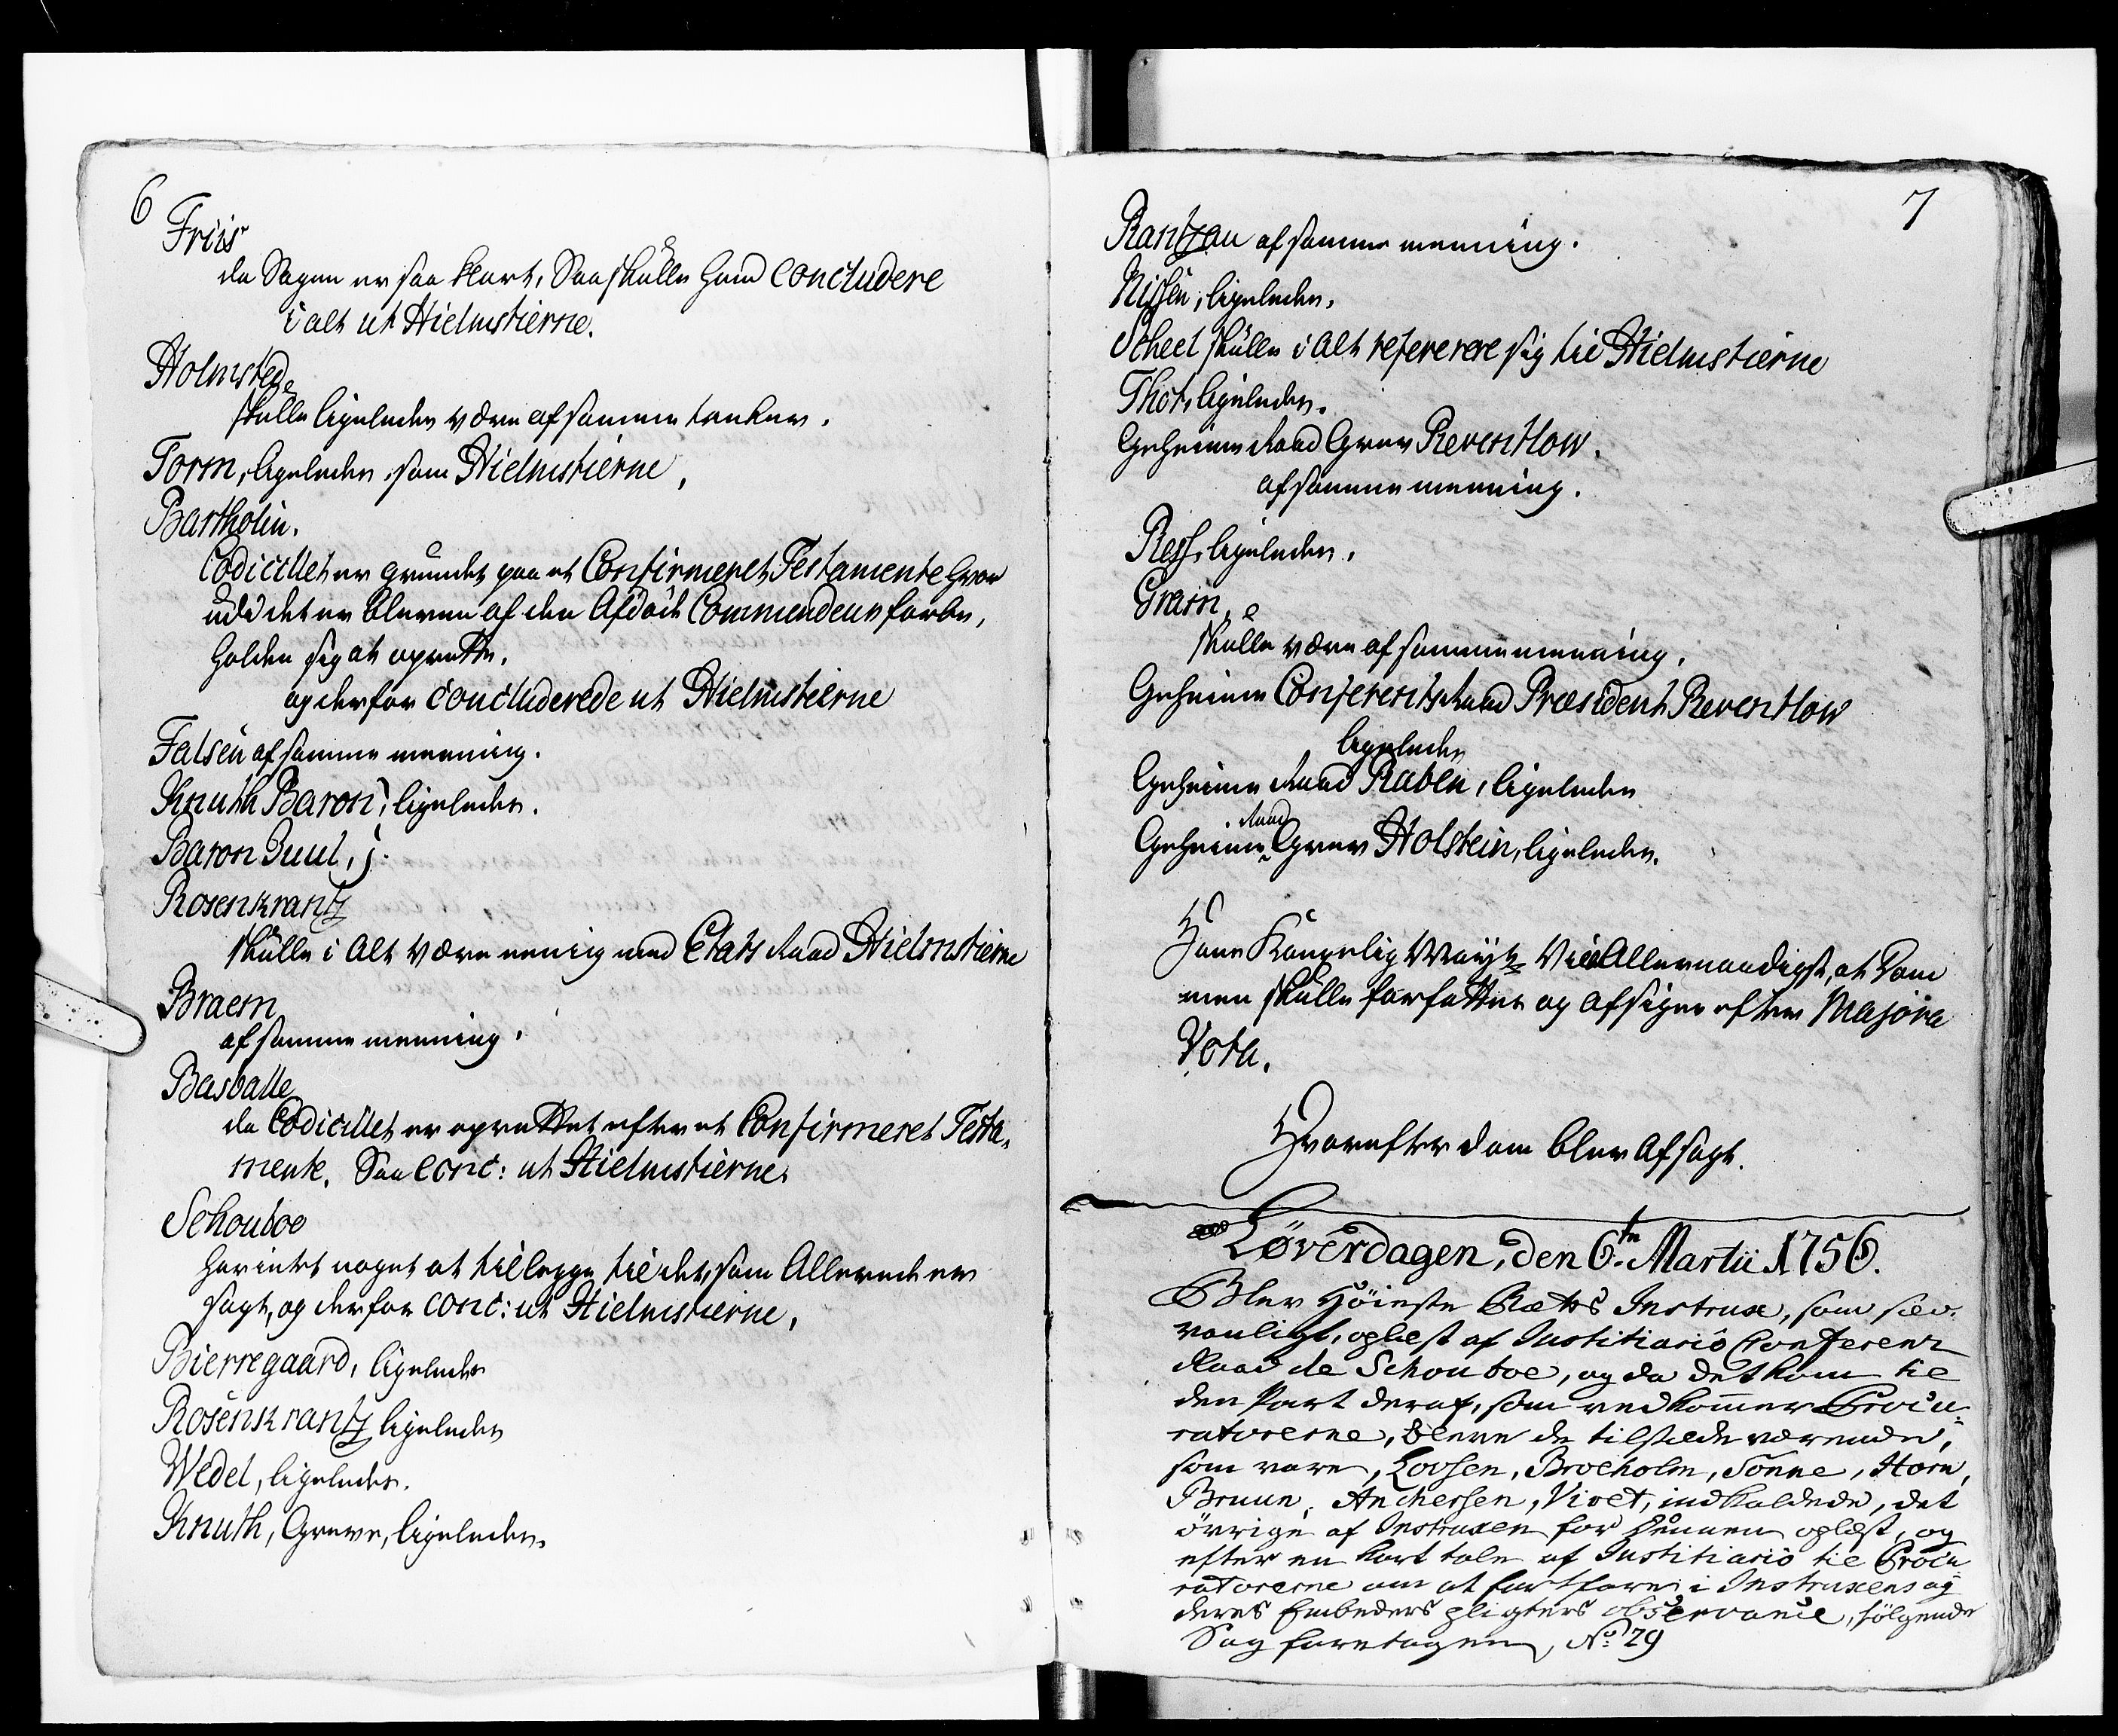 6
Friis
da Sagen er saa klart, Saa skulle hand concludere
i alt ut Hielmstierne.
Holmsted
skulle ligeledes være af samme tanker.
Torm, ligeledes, som Hielmstierne,
Bartholin.
Codicillet er grundet paa et Confirmeret Testamente hvor
udi det er bleven af den Afdøde Commendeur forbe,
holden sig at oprette,
og derfor concluderede ut Hielmstierne
Falsen af samme meening.
Knuth Baron, ligeledes.
Baron Juul, j.
Rosenkrantz
skulle i Alt være eenig med Etats Raad Hielmstierne
Braem
af samme meening.
Basballe
da Codicillet er oprettet efter et Confirmeret Testa,
mente. Saa conc: ut Hielmstierne.
Schouboe
har intet noget at tillegge til det, som Allerede er
sagt, og derfor conc: ut Hielmstierne,
Bierregaard, ligeledes
Rosenkrantz ligeledes
Wedel, ligeledes.
Knuth, Greve, ligeledes.
7
Rantzau af samme meening.
Nissen, ligeledes,
Scheel skulle i Alt referere sig til Hielmstierne
Thot, ligeledes.
Geheime Raad Grev Reventlow.
af samme meening.
Ress, ligeledes,
Gram,
skulle være af samme meening,
Geheime Conferents Raad Præsident Reventlow
ligeledes
Geheime Raad Raben, ligeledes
Geheime Raad Grev Holstein, ligeledes.
Hans Kongelig Mayt Vil Allernaadigst, at Dom
men skulle forfattes og Afsiges efter Majora
Vota.
Hvorefter dom blev Afsagt.
Løverdagen, den 6te Martii 1756.
Blev Høieste Rætts Instrux, som sæd,
vanligt, oplæst af Justitiario Conferenz
Raad de Schouboe, og da det kom til
den Part deraf, som vedkommer Procu-
ratorerne, bleve de tilstede værende,
som vare, Lovsen, Brocholm, Sonne, Horn,
Bruun, Anchersen, Vivet, indkaldede, det
øvrige af Instruxen for dennem oplæst, og
efter en kort tale af Justitiario til Procu
ratorerne om at fortfare i Instruxens og
deres Embeders pligters observance, følgende
Sag foretagen, No: 29